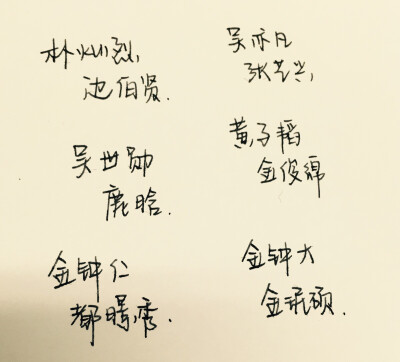 朴灿烈,
边伯贤.
吴亦凡
张艺兴,
吴世勋
鹿晗.
黄子韬
金俊绵
金钟仁
都暻秀.
金钟大
金珉硕.